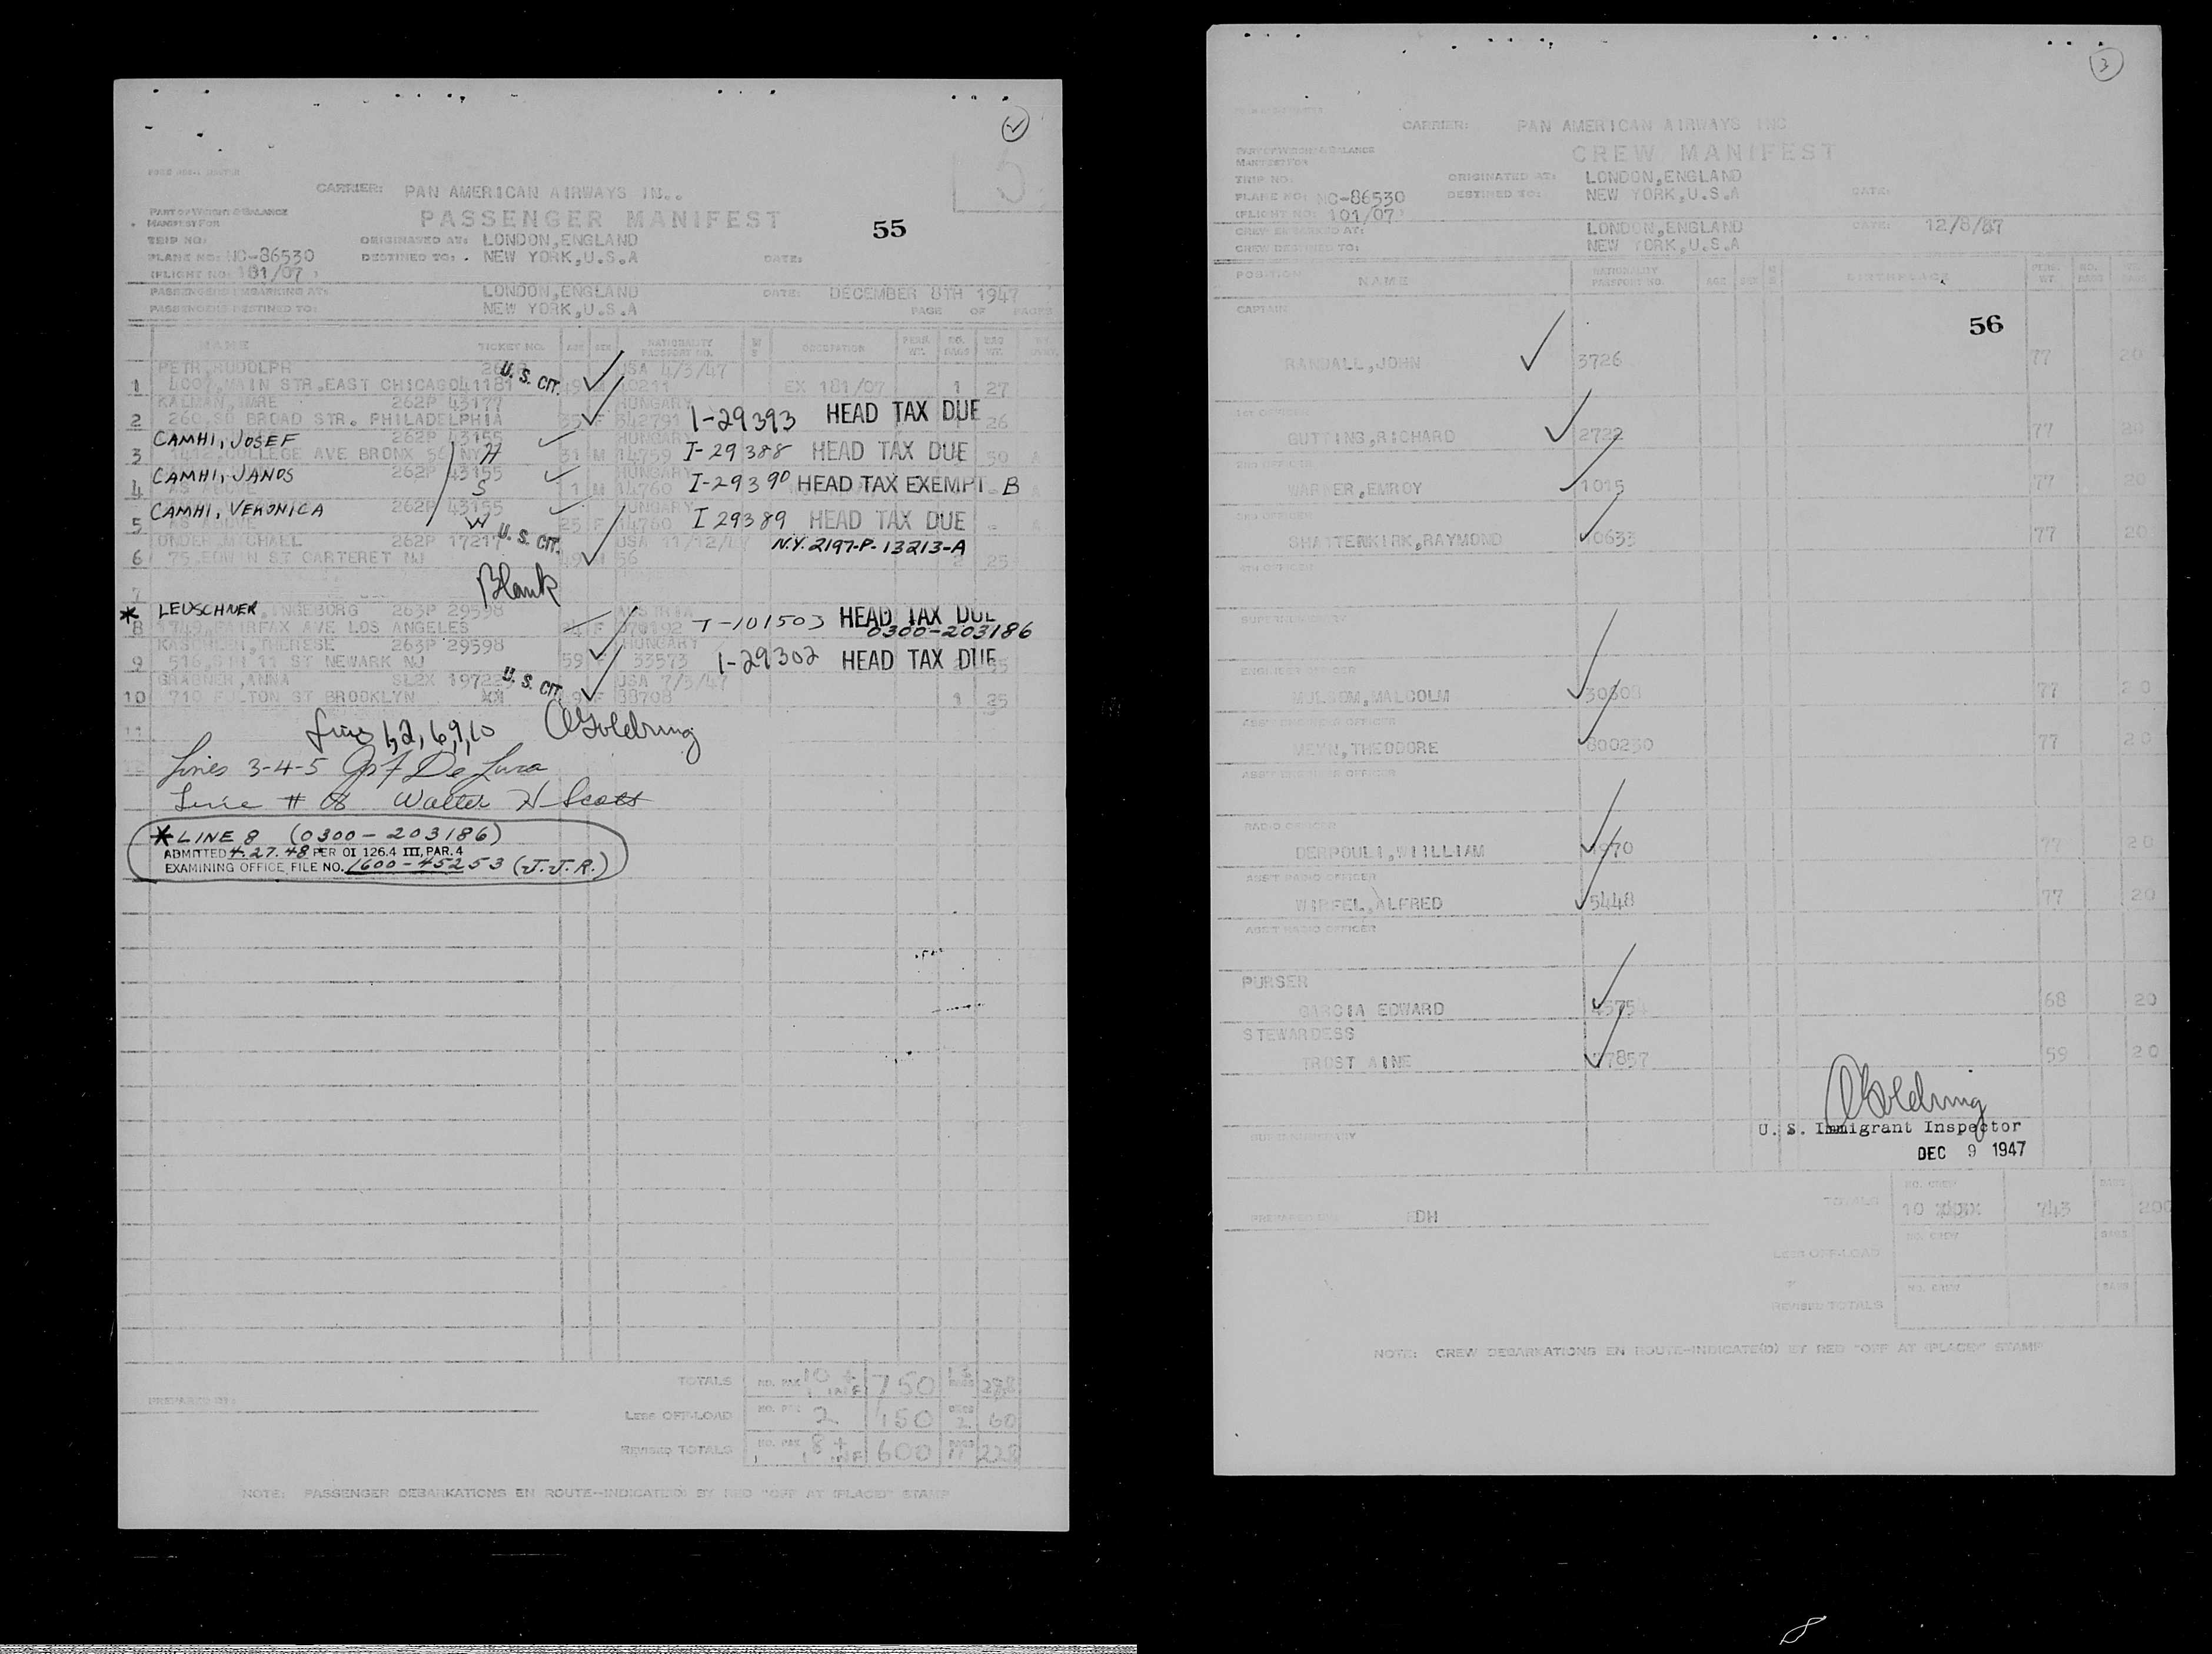 2
CARRIER: PAN AMERICAN AIRWAYS IN..
PART OF WEIGHT & BALANCE
MANIFEST FOR
PASSENGER MANIFEST
55
TRIP NO:
ORIGINATED AT: LONDON,ENGLAND
PLANE NO: NC-86530 DESTINED TO: NEW YORK,U.S.A DATE:
(FLIGHT NO: 101/07 )
PASSENGERS EMBARKING AT: LONDON,ENGLAND DATE: DECEMBER 8TH 1947
PASSENGERS DESTINED TO: NEW YORK,U.S.A PAGE OF PAGES
NAME TICKET NO. AGE SEX NATIONALITY PASSPORT NO. PERS. WT. NO. BAGS BAG WT.
PETR,RUDOLPR U.S. CIT. USA 4/3/47
1 4007,MAIN STR.EAST CHICAGO 41181 49 M 40211 EX 101/07 1 27
KALMAN,IMRE 262P 43177 HUNGARY
2 260,SO BROAD STR. PHILADELPHIA 35 F 342791 I-29393 HEAD TAX DUE 26
CAMHI, JOSEF 262P 43155 HUNGARY
3 1412,COLLEGE AVE BRONX 56 NY H 31 M 14759 I-29388 HEAD TAX DUE 50 A
CAMHI, JANOS 262P 43155 HUNGARY
4 AS ABOVE S 1 M 14760 I-29390 HEAD TAX EXEMPT - B A
CAMHI, VERONICA 262P 43155 HUNGARY
5 AS ABOVE W 25 F 14760 I 29389 HEAD TAX DUE - A
MICHAEL 262P 17217 U.S. CIT. USA 11/12/ N.Y. 2197-P-13213-A
6 75,EDWIN ST CARTERET NJ 49 M 56 2 25
7 Blank
* LEUSCHNER INGEBORG 263P 29598 AUSTRIA
8 1749,FAIRFAX AVE LOS ANGELES 24 F T-101503 HEAD TAX DUE
0300-203186
THERESE 263P 29598 HUNGARY
9 516,STH 11 ST NEWARK NJ 59 F 33573 I-29302 HEAD TAX DUE
ANNA U.S. CIT. USA 7/3/47
10 710 FULTON ST BROOKLYN 38708 1 25
11 Lines 1,2,6,9,10 Goldring
Lines 3-4-5 Jos F De Luca
Line # 8 Walter H Scott
* LINE 8 (0300-203186)
ADMITTED 4.27.48 PER OI 126.4 III, PAR. 4
EXAMINING OFFICE FILE NO. 1600-45253 (J.J.R.)
TOTALS NO. PAX 10 + 1 INF 750
PREPARED BY:
LESS OFF-LOAD NO. PAX 2 150 BAGS 2 60
REVISED TOTALS NO. PAX 8 + 1 INF 600 BAGS 11 228
NOTE: PASSENGER DEBARKATIONS EN ROUTE-INDICATE(D) BY RED "OFF AT (PLACE)" STAMP
3
CARRIER: PAN AMERICAN AIRWAYS INC
PART OF WEIGHT & BALANCE
MANIFEST FOR
CREW MANIFEST
TRIP NO: ORIGINATED AT: LONDON,ENGLAND
PLANE NO: NC-86530 DESTINED TO: NEW YORK,U.S.A DATE:
(FLIGHT NO: 101/07)
CREW EMBARKED AT: LONDON,ENGLAND DATE: 12/8/47
CREW DESTINED TO: NEW YORK,U.S.A
POSITION NAME NATIONALITY PASSPORT NO. AGE SEX BIRTHPLACE PERS. WT. NO. BAGS
CAPTAIN
56
RANDALL,JOHN 3726 77 20
1ST OFFICER
GUTTING,RICHARD 2722 77 20
2ND OFFICER
WARNER,EMROY 1015 77 20
3RD OFFICER
SHATTENKIRK,RAYMOND 10633 77 20
4TH OFFICER
SUPERNUMERARY
ENGINEER OFFICER
MULSOM,MALCOLM 77 20
ASST ENGINEER OFFICER
MEYN,THEODORE 800230 77 20
ASST ENGINEER OFFICER
RADIO OFFICER
DERPOULI,WIILLIAM 77 20
ASST RADIO OFFICER
ALFRED 5448 77 20
ASST RADIO OFFICER
PURSER
GARCIA EDWARD 68 20
STEWARDESS
TRUST AINE 59 20
Goldring
U. S. Immigrant Inspector
SUPERNUMERARY
DEC 9 1947
NO. CREW BAGS
TOTALS 10 743 200
PREPARED BY: EDH
NO. CREW BAGS
LESS OFF-LOAD
NO. CREW BAGS
REVISED TOTALS
NOTE: CREW DEBARKATIONS EN ROUTE-INDICATE(D) BY RED "OFF AT (PLACE)" STAMP